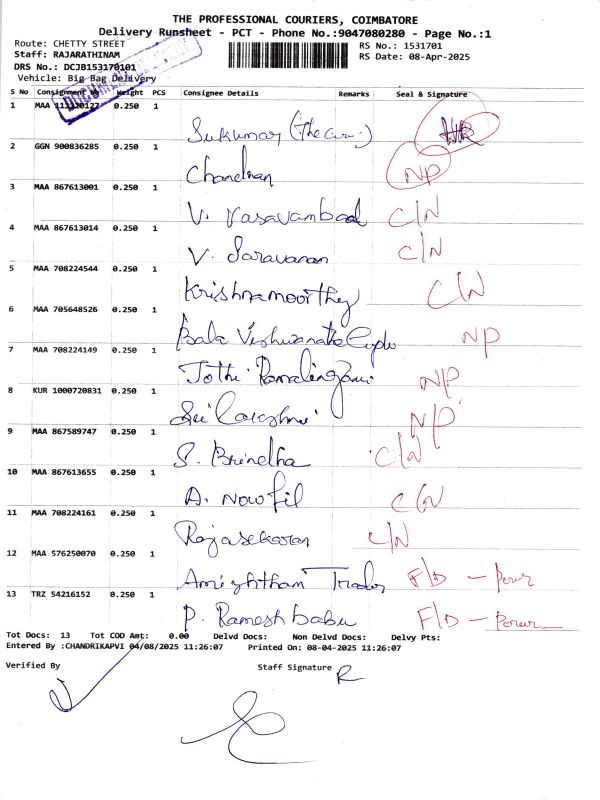 THE PROFESSIONAL COURIERS, COIMBATORE
Delivery Runsheet - PCT - Phone No.:9047080280 - Page No.:1
Route: CHETTY STREET
RS No.: 1531701
Staff: RAJARATHINAM
RS Date: 08-Apr-2025
DRS No.: DCJB153170101
Vehicle: Big Bag Delivery
S No Consignment Weight PCS Consignee Details Remarks Seal & Signature
1 MAA 0.250 1
Sukumar
2 GGN 900836285 0.250 1
Chandran NP
3 MAA 867613001 0.250 1
V. C/N
4 MAA 867613014 0.250 1
V. Saravanan C/N
5 MAA 708224544 0.250 1
Krishnamoorthy C/N
6 MAA 705648526 0.250 1
Bala NP
7 MAA 708224149 0.250 1
Jothi Ramalingam NP
8 KUR 1000720831 0.250 1
Sri Lakshmi NP
9 MAA 867589747 0.250 1
S. Brindha C/N
10 MAA 867613655 0.250 1
A. Nowfil C/N
11 MAA 708224161 0.250 1
Rajasekaran C/N
12 MAA 576250070 0.250 1
F/D
13 TRZ 54216152 0.250 1
P. Ramesh babu F/D
Tot Docs: 13 Tot COD Amt: 0.00 Delvd Docs: Non Delvd Docs: Delvy Pts:
Entered By :CHANDRIKAPVI 04/08/2025 11:26:07 Printed On: 08-04-2025 11:26:07
Verified By Staff Signature R